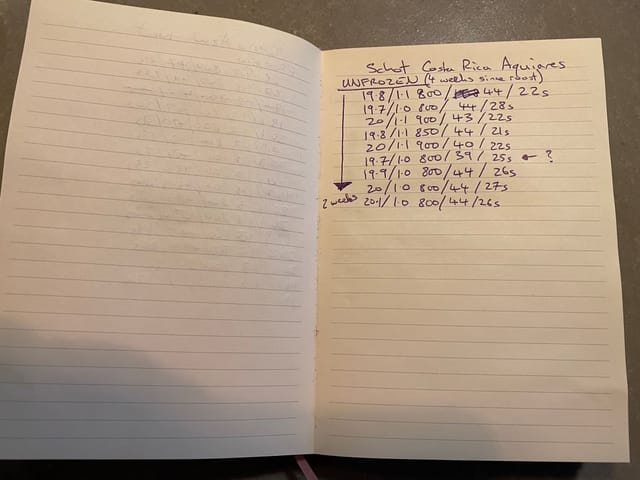 Schot Costa Rica Aquiares
UNFROZEN (4 weeks since roast)
19.8/1.1 800/ 44/22s
19.7/1.0 800/44/28s
20/1.1 900/43/22s
19.8/1.1 850/44/21s
20/1.1 900/40/22s
19.7/1.0 800/39/25s ← ?
19.9/1.0 800/44/26s
20/1.0 800/44/27s
2 weeks 20.1/1.0 800/44/26s